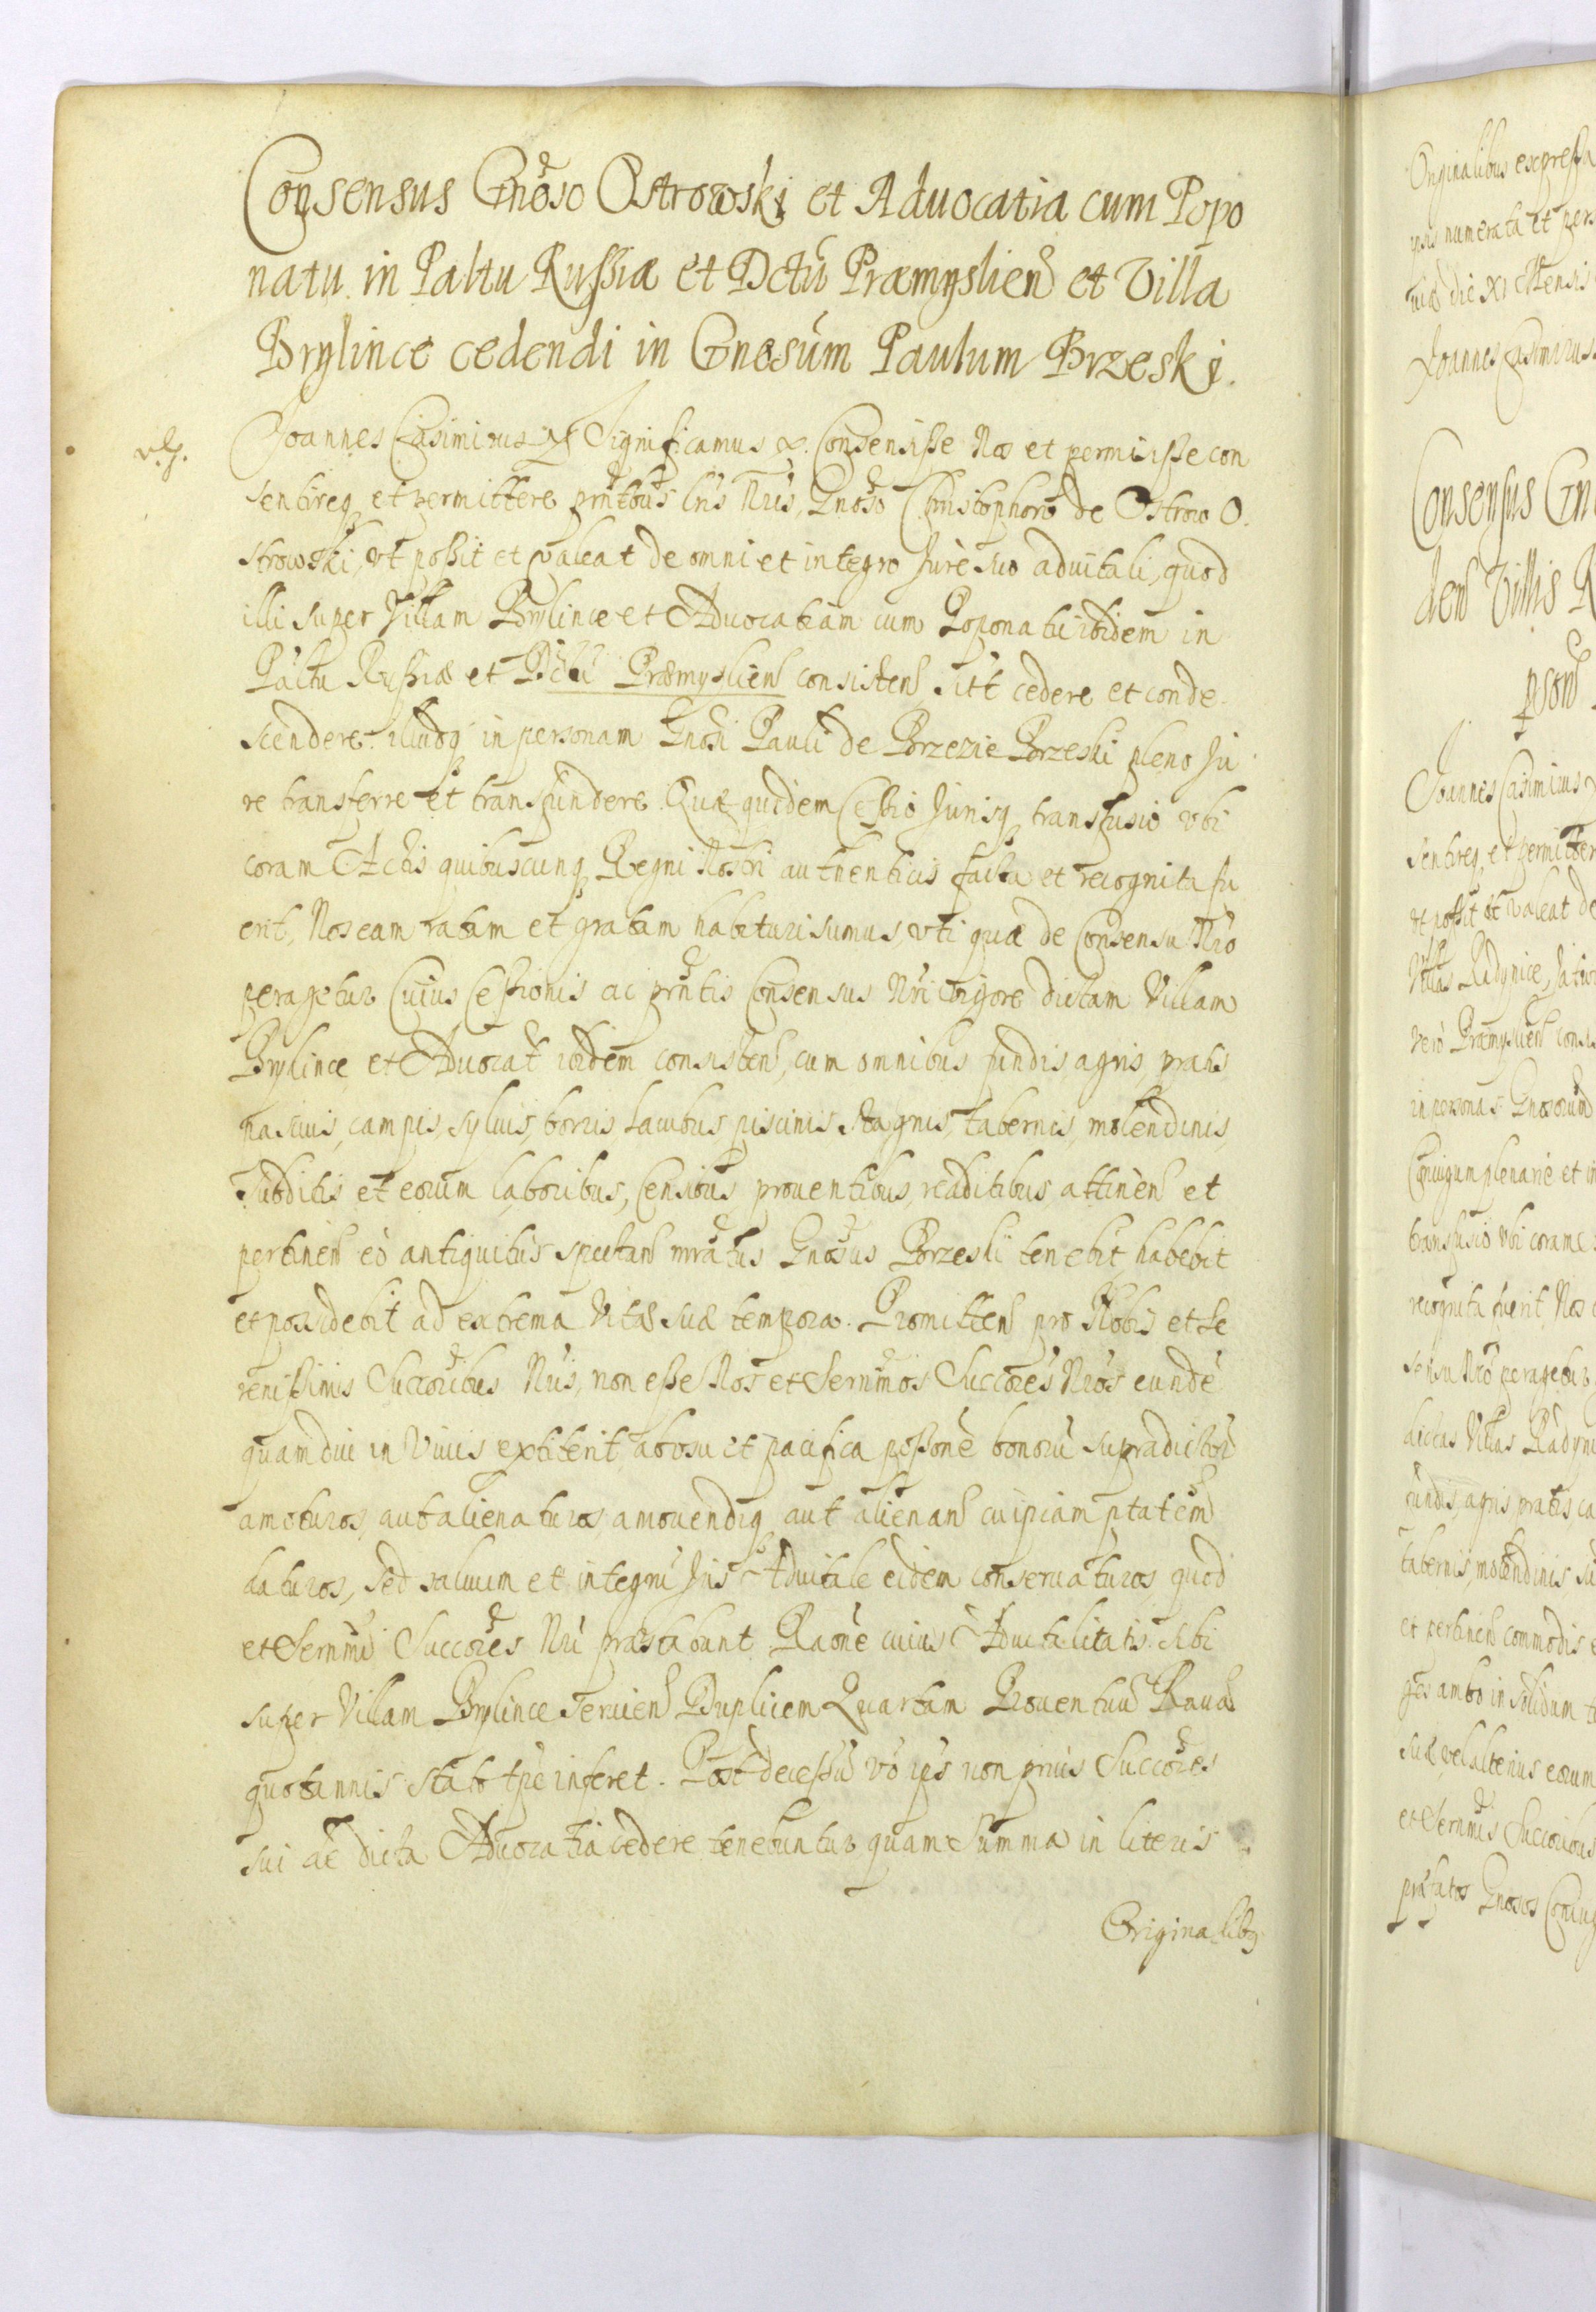 Consensus Gnoso Ostrowski et Aduocatia cum Popo
natu in Paltu Russiæ et Dctu Præmyslien et Villa
Brylince cedendi in Gnosum Paulum Brzeski.
Joannes Casimirus Significamus &. Consensisse Nos et permisisse con
sentireq et permittere prntbus lris Nris, Gnoso Christophoro de Ostrow O.
strowski, vt possit et valeat de omni et integro Jure suo aduitali, quod
illi super Villam Brylince et Aduocatiam cum Poponatu ibidem in
Paltu Russiæ et Dctu Præmyslien consisten sitt cedere et conde
scendere. illudq in personam Gnosi Pauli de Brzezie Brzeski pleno Ju
re transferre et transfundere. Quæ quidem Cessio Jurisq transfusio vbi
coram Actis quibuscunq Regni Nostri authenticis facta et recognita fu
erit, Nos eam ratam et gratam habituri sumus, vti quæ de Consensu Nro
peragetur Cuius Cessionis ac prntis Consensus Nri vigore dictam Villam
Brylince et Aduocat ibidem consisten, cum omnibus fundis, agris, pratis
pascuis, campis, syluis, borris Lacubus piscinis stagnis, tabernis, molendinis,
Subditis et eorum laboribus, Censibus prouentibus, redditibus, attinen et
pertinen eò antiquitus spectan mratus Gnosus Brzeski tenebit habebit
et possidebit ad extrema Vitæ suæ tempora. Promitten pro Nobis et Se
renissimis Succoribus Nris, non esse Nos et Sernmos Succores Nros eunde
quamdiu in Viuis extiterit, ab vsu et pacifica possone bonoru supradictor
amoturos, aut alienaturos, amouendiq aut alienan cuipiam ptatem
daturos, sed saluum et integru Jus Aduitale eidem conseruaturos, quod
et Sernmi Succores Nri præstabunt Raone cuius Aduitalitatis sibi
super Villam Brylince seruien Duplicem Quartam Prouentuu Raua
quotannis stato tpe inferet. Post decessu vo ips non prius Succores
sui de dicta Aduocatia cedere tenebuntur quam Summa in literis
Originalibq
Originalibus expressa
ipsis numerata et pers
die XI Mensis
Joannes Casimirus
Consensus Gn
den Villis R
pson
Joannes Casimirus
sentireq, et permitter
vt possit et valeat de
Villas Radynice,
vero Præmyslien consis
in personas Gnosorum
Coniugum plenarie et in
transfusio vbi coram
recognita fuerit, Nos
sensu Nro peragetur
dictas Villas Radyni
fundis, agris, pratis, ca
tabernis, molendinis, su
et pertinen commodis
ges ambo in solidum t
suæ vel alterius eorum
et Sernmis Succoribus
præfatos Gnosos Coniug